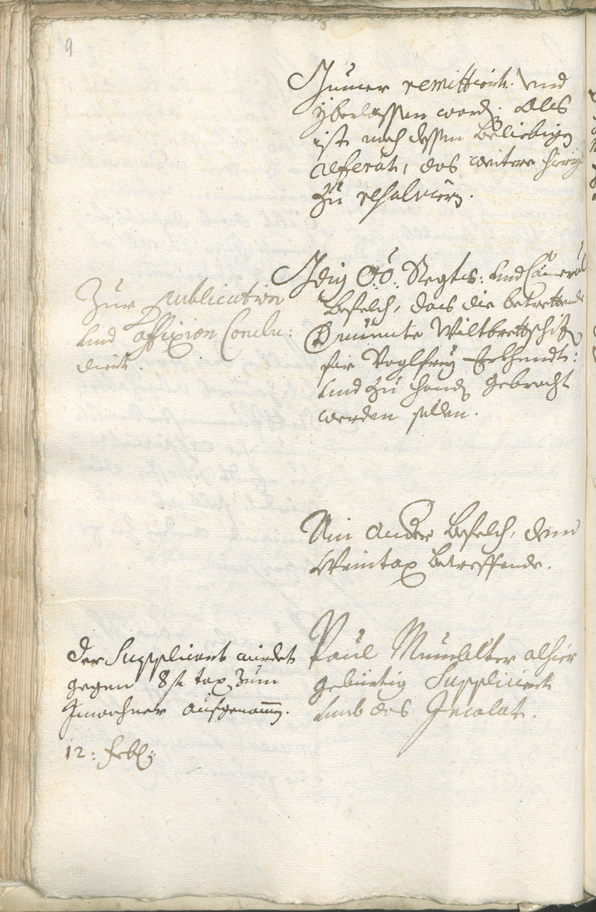 9
Immer remittiert. und
yberlassen word. Als
ist nach dessen Beliebigen
referat, das weitere hieryber
zu resolvieren.
Zur Publication
und affixion Conclu:
diert.
Ein O:Ö: Regts: und Cameral
Befelch, dass die betrettende
Wiltbrettschizen
für Voglfrey Erkhendt:
und zu handen gebracht
werden sollen.
Ein ander Befelch, denn
Weintax betreffende.
Der Supplicant würdet
gegen 8 fl tax, zum
Inwohner aufgenomm.
12: febr:
Paul alhier
gebürtig Suppliciert
umb das Incolat.